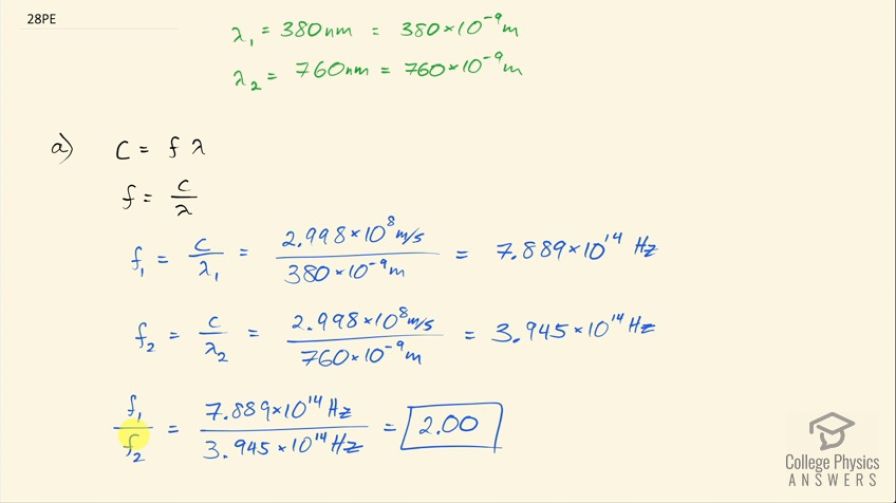 28PE
λ₁ = 380nm = 380×10⁻⁹m
λ₂ = 760nm = 760×10⁻⁹m
a) C = f λ
f = c/λ
f₁ = c/λ₁ = 2.998×10⁸m/s / 380×10⁻⁹m = 7.889×10¹⁴ Hz
f₂ = c/λ₂ = 2.998×10⁸m/s / 760×10⁻⁹m = 3.945×10¹⁴Hz
f₁/f₂ = 7.889×10¹⁴Hz / 3.945×10¹⁴Hz = 2.00
College Physics
ANSWERS